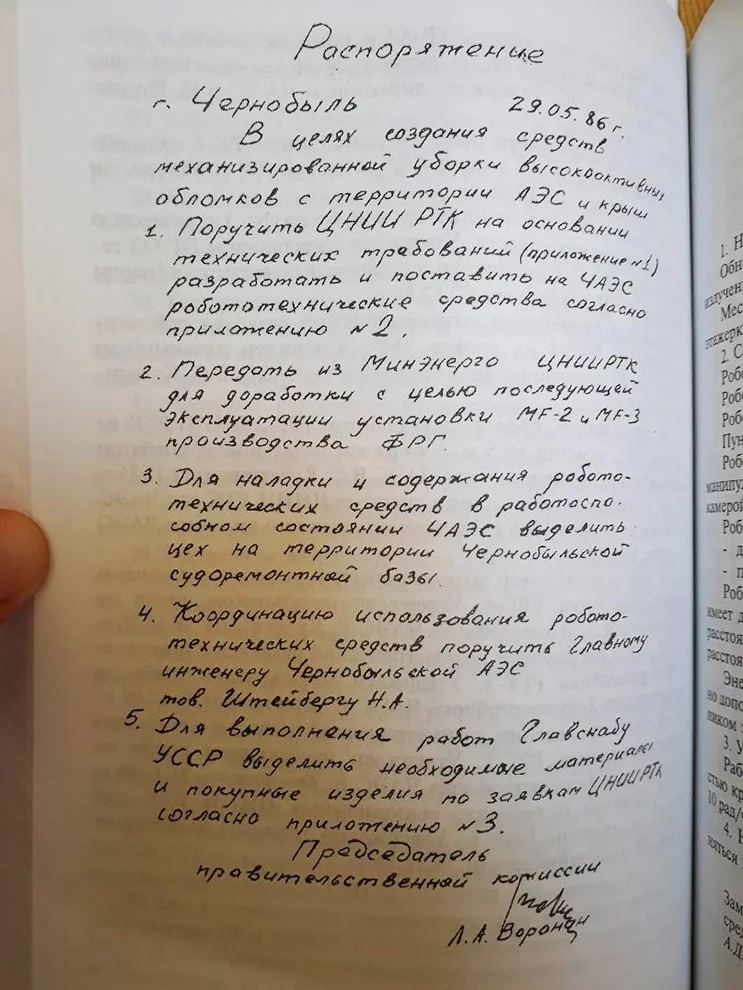 Распоряжение
г. Чернобыль 29.05.86 г.
В целях создания средств
механизированной уборки высокоактивных
обломков с территории АЭС и крыш
1. Поручить ЦНИИ РТК на основании
технических требований (приложение №1)
разработать и поставить на ЧАЭС
робототехнические средства согласно
приложению №2.
2. Передать из МинЭнерго ЦНИИРТК
для доработки с целью последующей
эксплуатации установки MF-2 и MF-3
производства ФРГ.
3. Для наладки и содержания робото-
технических средств в работоспо-
собном состоянии ЧАЭС выделить
цех на территории Чернобыльской
судоремонтной базы.
4. Координацию использования робото-
технических средств поручить Главному
инженеру Чернобыльской АЭС
тов. Штейбергу Н.А.
5. Для выполнения работ Главснабу
УССР выделить необходимые материалы
и покупные изделия по заявкам ЦНИИРТК
согласно приложению №3.
Председатель
правительственной комиссии
Л.А. Воронин
1. Н
Обна
излучени
Мес
этажерк
2. С
Робо
Робо
Робо
Пун
Робо
манипул
камерой
Роб
- д
- п
Робо
имеет д
расстоя
расстоя
Эне
но допо
ником э
3. У
Раб
стью кр
10 рад/ч
4. Н
няться
Зам
сред
А.Д